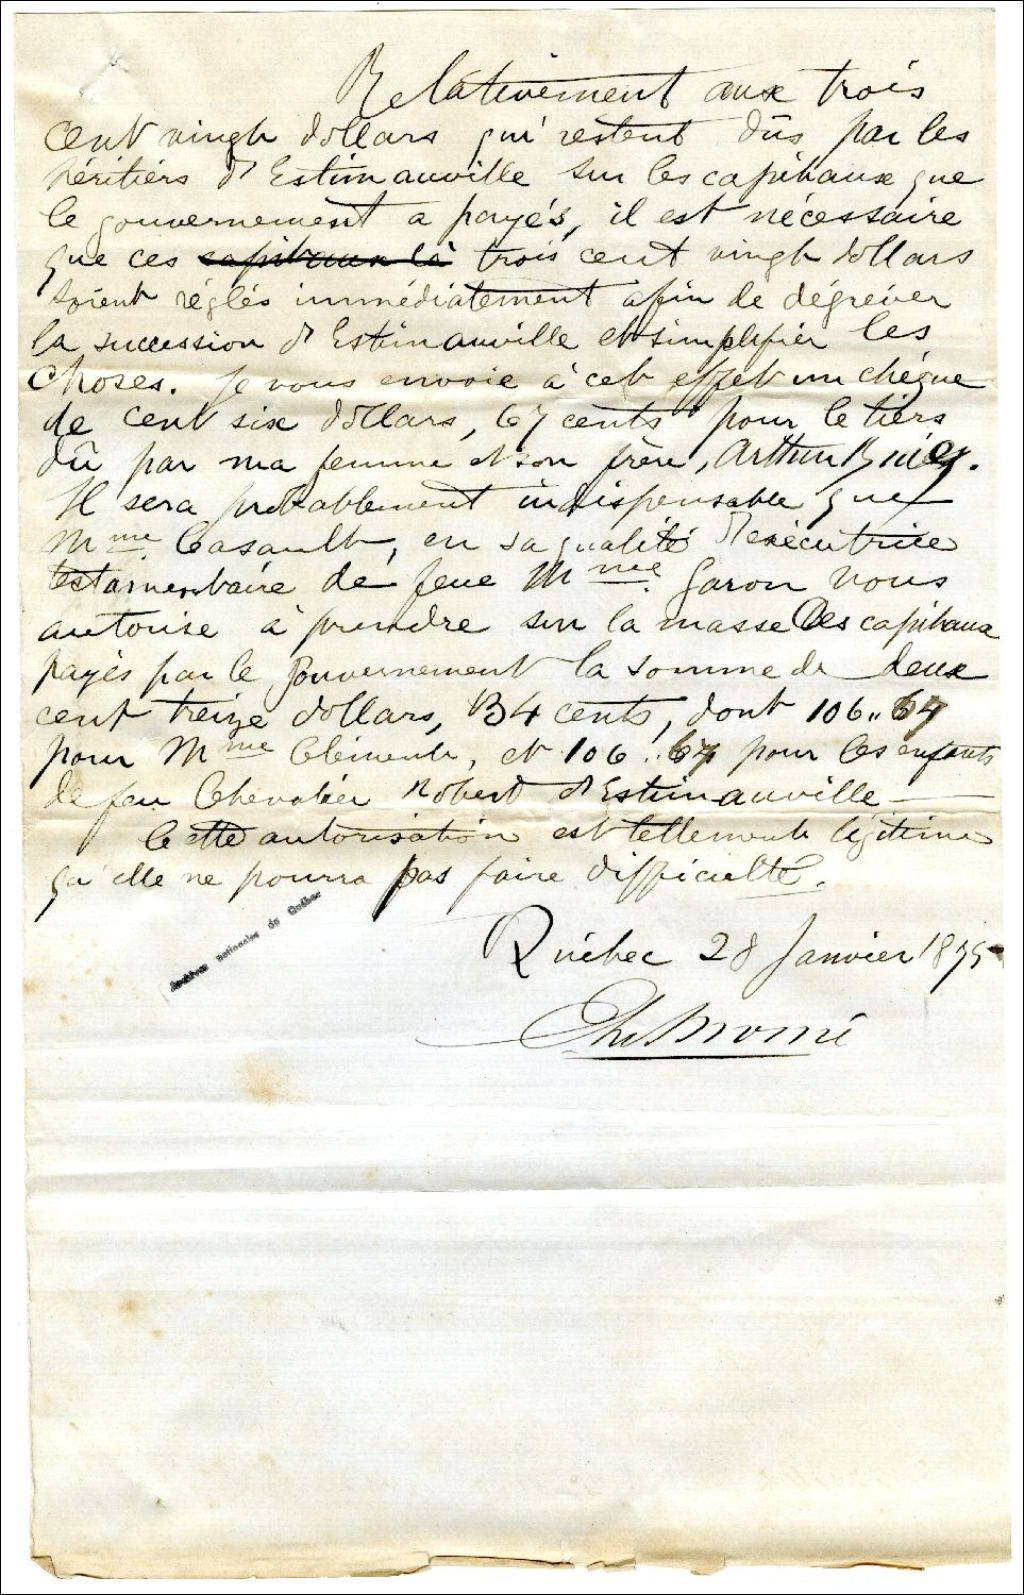 Relativement aux trois
cent vingt dollars qui restent dûs par les
héritiers d'Estimauville sur les capitaux que
le gouvernement a payés, il est nécessaire
que ces capitaux là trois cent vingt dollars
soient réglés immédiatement afin de dégréver
la succession d'Estimauville et simplifier les
choses. Je vous envoie à cet effet un chéque
de cent six dollars, 67 cents pour le tiers
dû par ma femme et son frère, Arthur Buies.
Il sera probablement indispensable que
Mme. Casault, en sa qualité d'exécutrice
testamentaire de feue Mme. Garon nous
autorise à prendre sur la masse des capitaux
payés par le gouvernement la somme de deux
cent treize dollars, 34 cents, dont 106.. 67
pour Mme Clémente, et 106.. 67 pour les enfants
de feu Chevalier Robert d'Estimauville
Cette autorisation est tellement légitime
qu'elle ne pourra pas faire difficulté.
Archives nationales du Québec
Québec 28 Janvier 1895